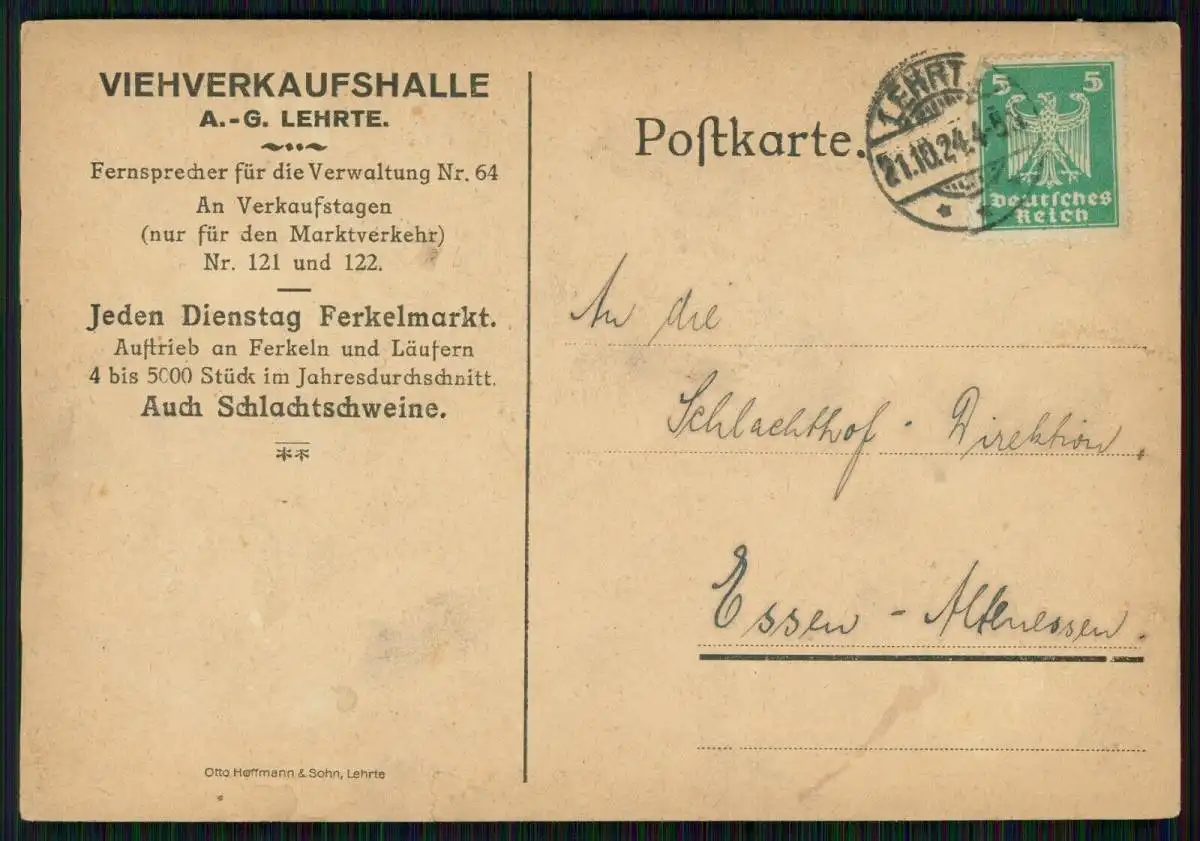 VIEHVERKAUFSHALLE
A.-G. LEHRTE.
Fernsprecher für die Verwaltung Nr. 64
An Verkaufstagen
(nur für den Marktverkehr)
Nr. 121 und 122.
Jeden Dienstag Ferkelmarkt.
Auftrieb an Ferkeln und Läufern
4 bis 5000 Stück im Jahresdurchschnitt.
Auch Schlachtschweine.
Otto Hoffmann & Sohn, Lehrte
Poſtkarte.
LEHRT
21.10.24.4-5
5 5
Deutsches
Reich
An die
Schlachthof - Direktion.
Essen - Altenessen.